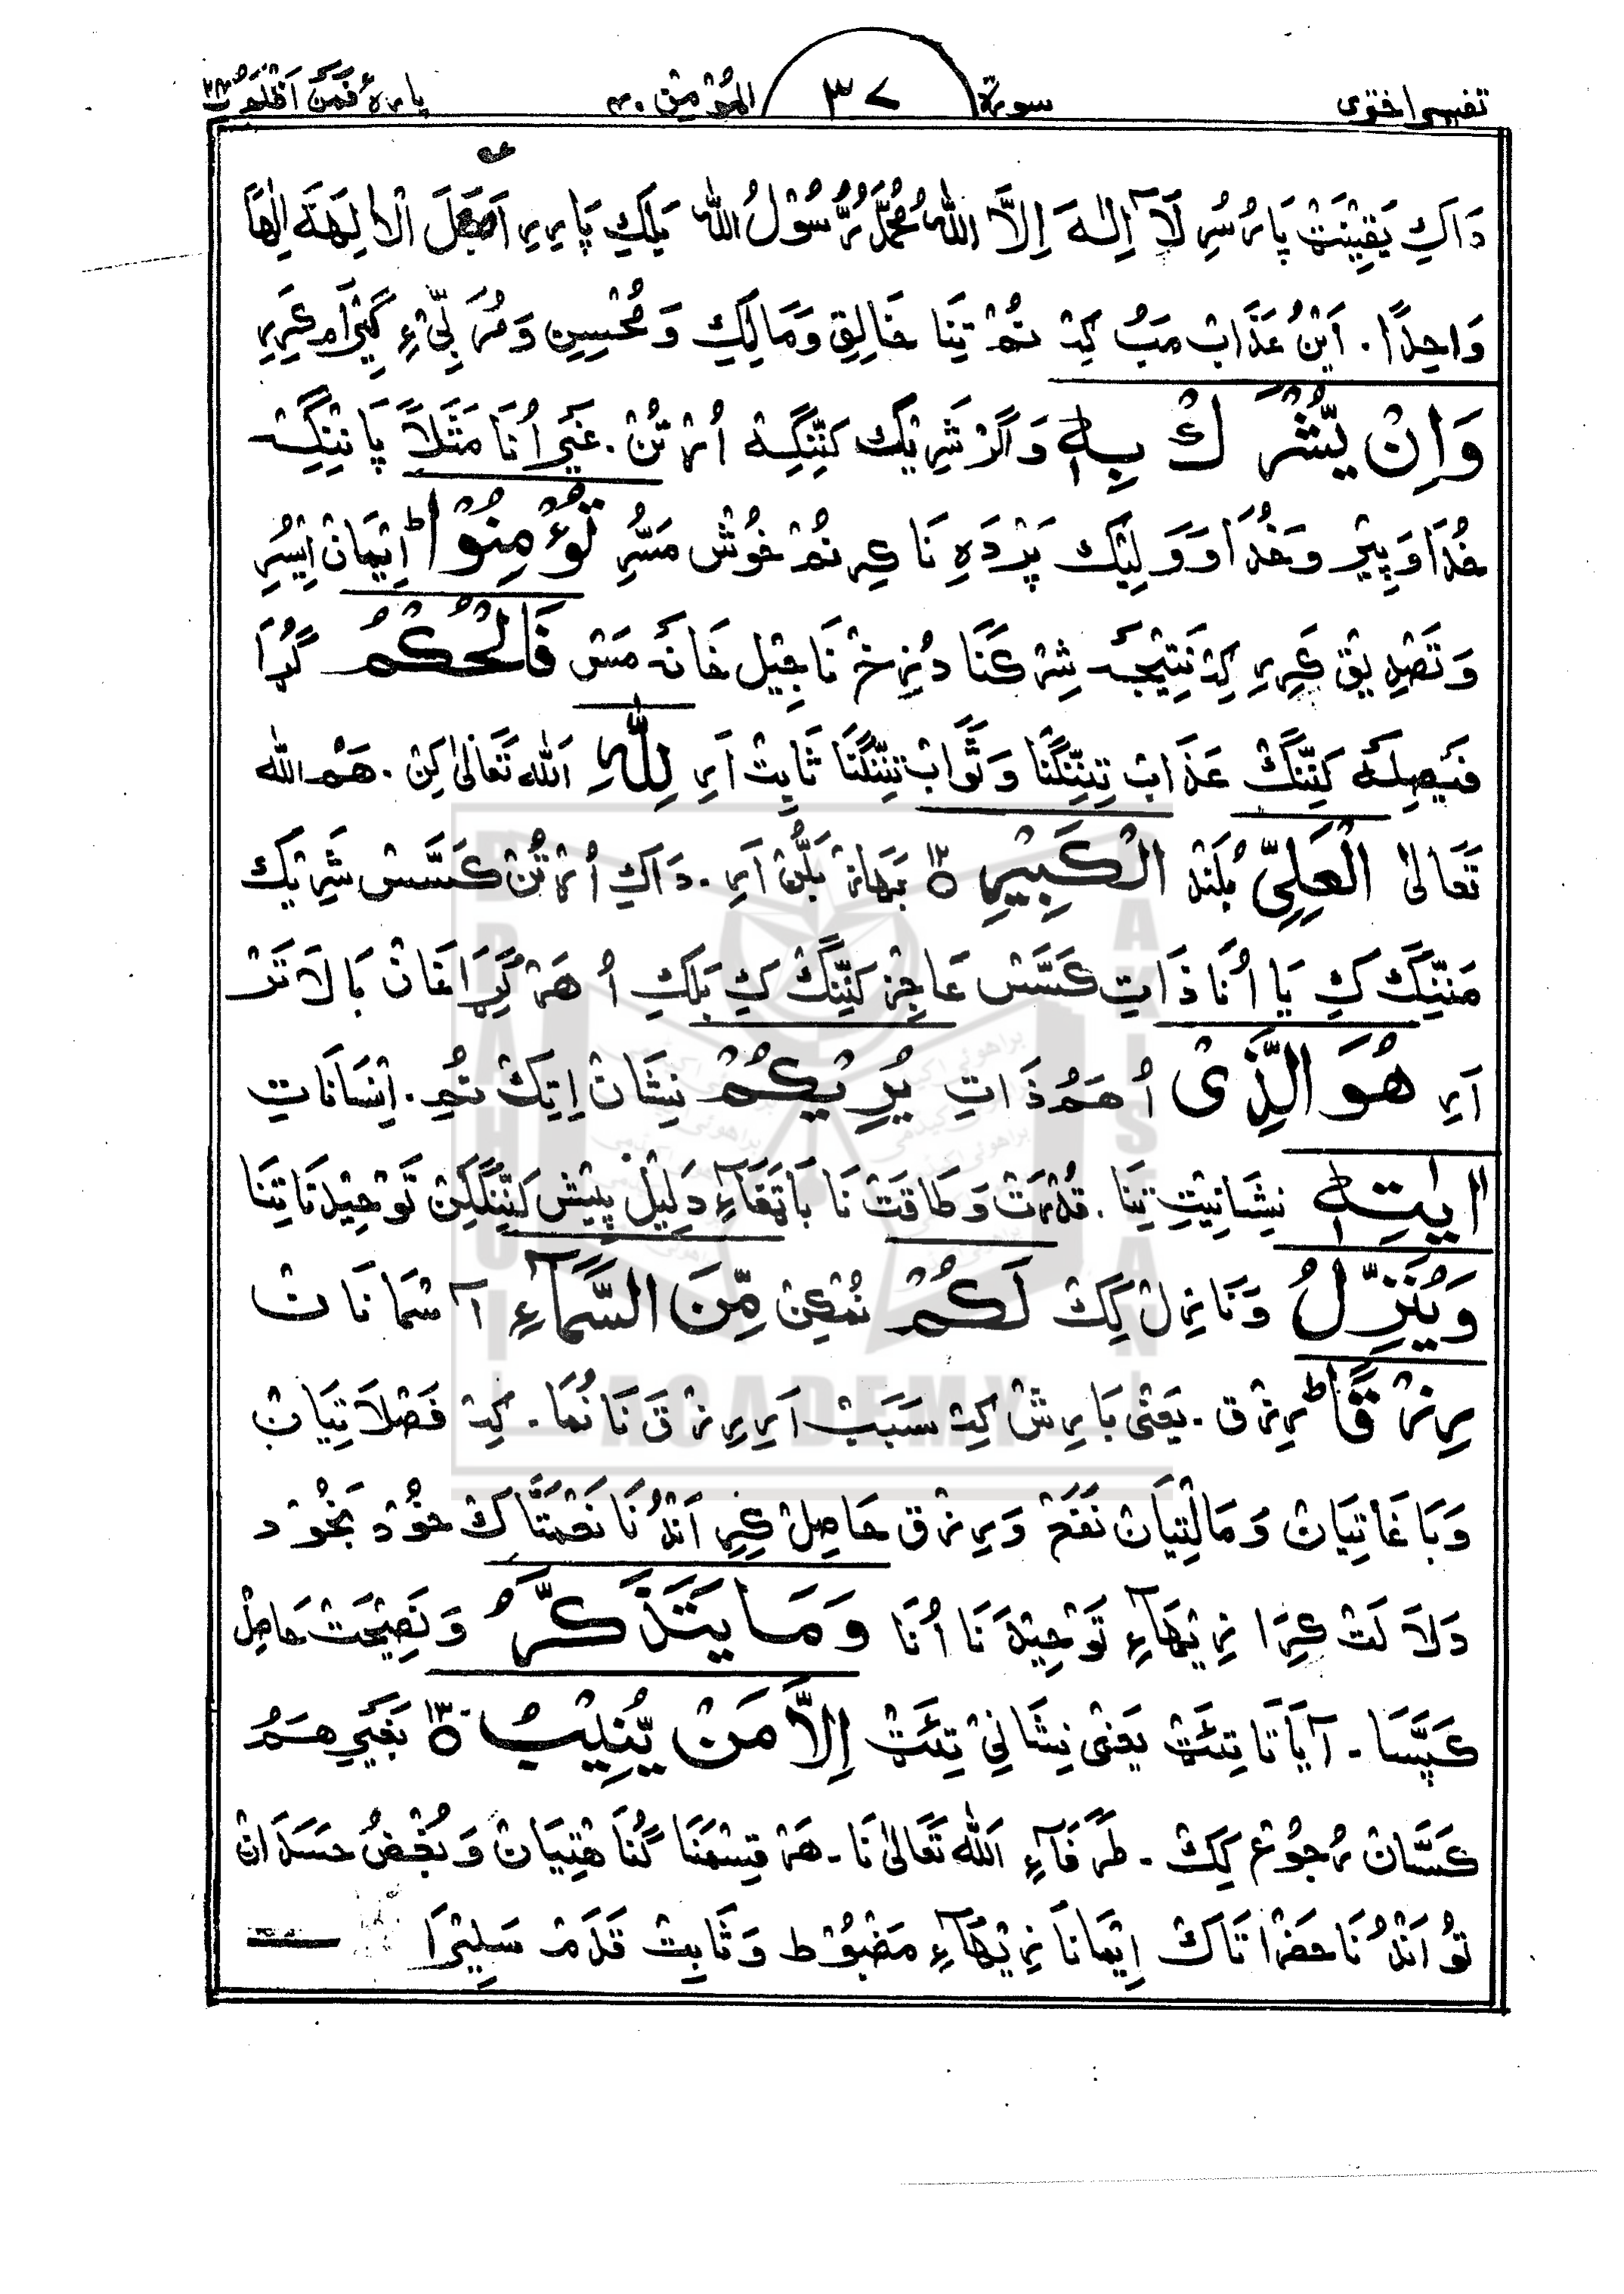 تفسیر اختری سورة ٣٧ المؤمن ٤٠ پارہ فمن اظلم ٢٤
دَاکِ یَقِیْنَتْ پَارُسُرِ لَآ اِلٰهَ اِلَّا اللّٰهُ مُحَمَّدٌ رَّسُوْلُ اللّٰه بَلکِ پَارِیرِ اَجَعَلَ الْاٰلِهَةَ اِلٰهًا
وَاحِدًا. اَیْنُ عَذَاب مَبُ کِه نُمْ تِنَا خَالِق وَ مَالِکِ وَ مُحْسِن وَ مُرَبِّیْءِ
وَاِنْ یُّشْرَكْ بِهٖ وَ اَگر شَرِیْک کِنِّنگِسَه اُرْتُن. غَیر اُنَا مَثَلًا پَانِنگِسَه
خُدَا وَ پِیْر وَ خُدَا وَ وَلِیْک پَرْدَہِ نَا کِر نُم خُوْش مَسُّرِ تُؤْمِنُوْا ؕ اِیْمَان اِیْسُرِ
وَ تَصْدِیْق کِرِیرِ کِه نَتِیْجَه شِرْکَنَا دُزِخْ نَا جِیْل خَانَه مَسْ فَالْحُكْمُ گُڑَا
فَیْصِلَه کِنِّنگ عَذَاب تِنِنگنَا وَ ثَوَاب تِنِنگنَا ثَابِت اَرِ لِلّٰهِ اَللّٰه تَعَالیٰ کِن. هَمْ اللّٰه
تَعَالیٰ الْعَلِیِّ بُلَنْد الْكَبِیْرِ ١٢ بَھَاز بَلُّن اَرِ. دَاکِ اُرْتُن کَسَّس شَرِیْک
مَنِّنگ کِ یَا اُنَا ذَاتِ کَسَّس عَاجِز کِنِّنگ کِ بَلکِ اُ هَرْ گِڑَا غَان بَالَاتَر
اَرِ هُوَ الَّذِیْ اُ هَمُ ذَاتِ یُرِیْكُمْ نِشَان اِتِکْ نُمِ. اِنْسَانَاتِ
اٰیٰتِهٖ نِشَانِیْتِ تِنَا. قُدْرَت وَ طَاقَت نَا بَاتَغَآءِ دَلِیْل پِیْش کِنِّنگکِن تَوْحِیْد نَا تِنَا
وَیُنَزِّلُ وَ نَازِل کِک لَكُمْ نُمکِن مِّنَ السَّمَآءِ آسْمَانَان
رِزْقًا ؕ رِزْق. یَعْنٰی بَارِش کِه سَبَبْ اَرِ رِزْقَ نَا نُمَا. کِه فَصْلَاتِیَان
وَ بَاغَاتِیَان وَ مَالْتِیَان نَفَع وَ رِزْق حَاصِل کِرِ اَنْدُنَا نَعْمَتَاک خُوْد بَخُوْد
دَلَالَت کِرَا زِیْھَآءِ تَوْحِیْد نَا اُنَا وَمَا یَتَذَكَّرُ وَ نَصِیْحَت حَاصِل
کَپَّسَا. آیَاتَا تِئَٹ یَعْنٰی نِشَانِیْ تِئَٹ اِلَّا مَنْ یُّنِیْبُ ١٣ بَغَیر هَمُ
کَسَّان رُجُوْع کِک. طَرَفَآءِ اَللّٰه تَعَالیٰ نَا. هَرْ قِسْمَنَا گُنَاهْتِیَان وَ بُغْض حَسَدَان
تُو اَنْدُنَا حَضْرَاتَاک اِیْمَانَا زِیْھَآءِ مَضْبُوْط وَ ثَابِت قَدَم سَلِیْرَا
BRAHUI ACADEMY PAKISTAN